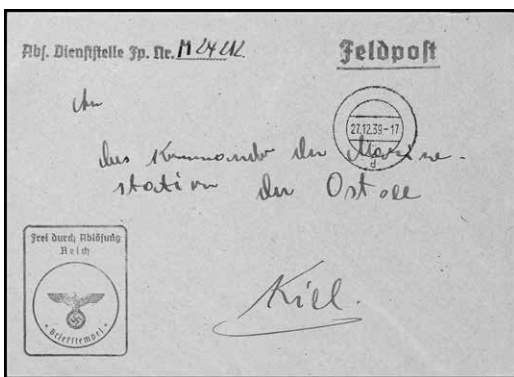 Abs. Dienststelle Fp. Nr. M 24 212
Feldpost
An
das Kommando der Marine-
station der Ostsee
27.12.39-17
d
Frei durch Ablösung
Reich
Briefstempel
Kiel.